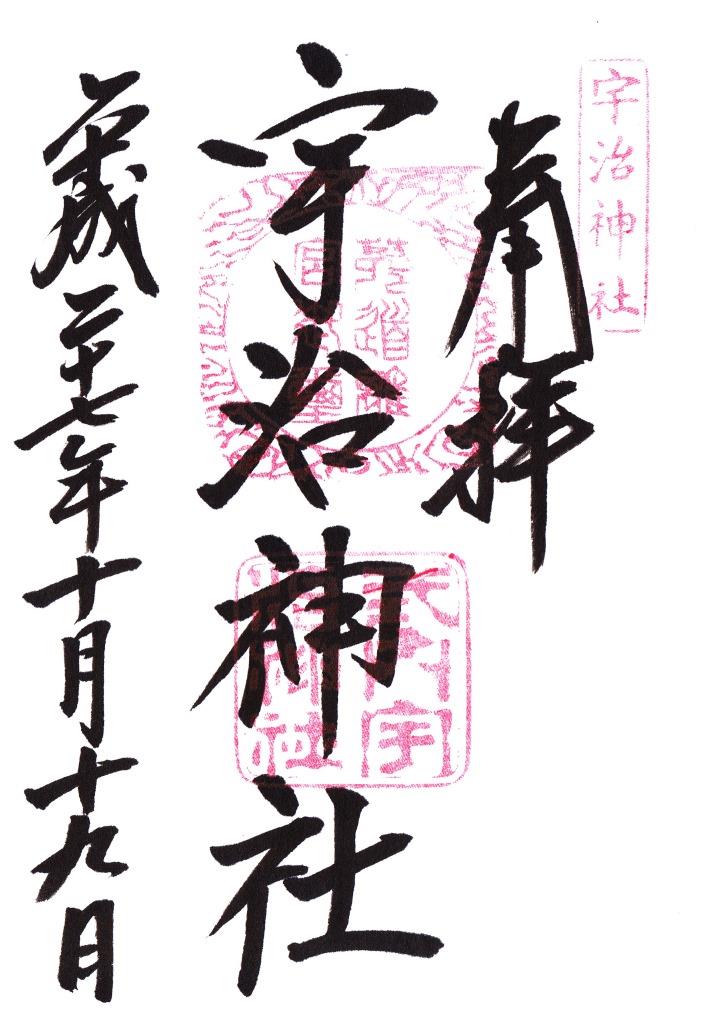 宇治神社
奉拝
宇治神社
式内宇
治神社
平成二十七年十月十九日